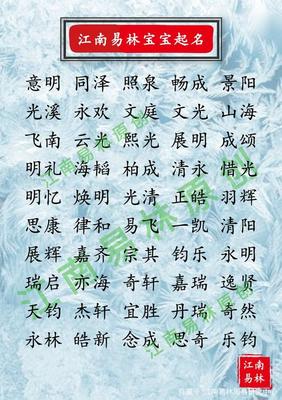 江南易林宝宝起名
意明 同泽 照泉 畅成 景阳
光溪 永欢 文庭 文光 山海
飞南 云光 熙光 展明 成颂
明礼 海韬 柏成 清永 惜光
明忆 焕明 光清 正皓 羽辉
思康 律和 易飞 一凯 清阳
展辉 嘉齐 宗其 钧乐 永明
瑞启 亦海 奇轩 嘉瑞 逸贤
天钧 杰轩 宜胜 丹瑞 奇然
永林 皓新 念成 思奇 乐钧
江南易林原创
江南易林原创
江南易林原创
江南
易林